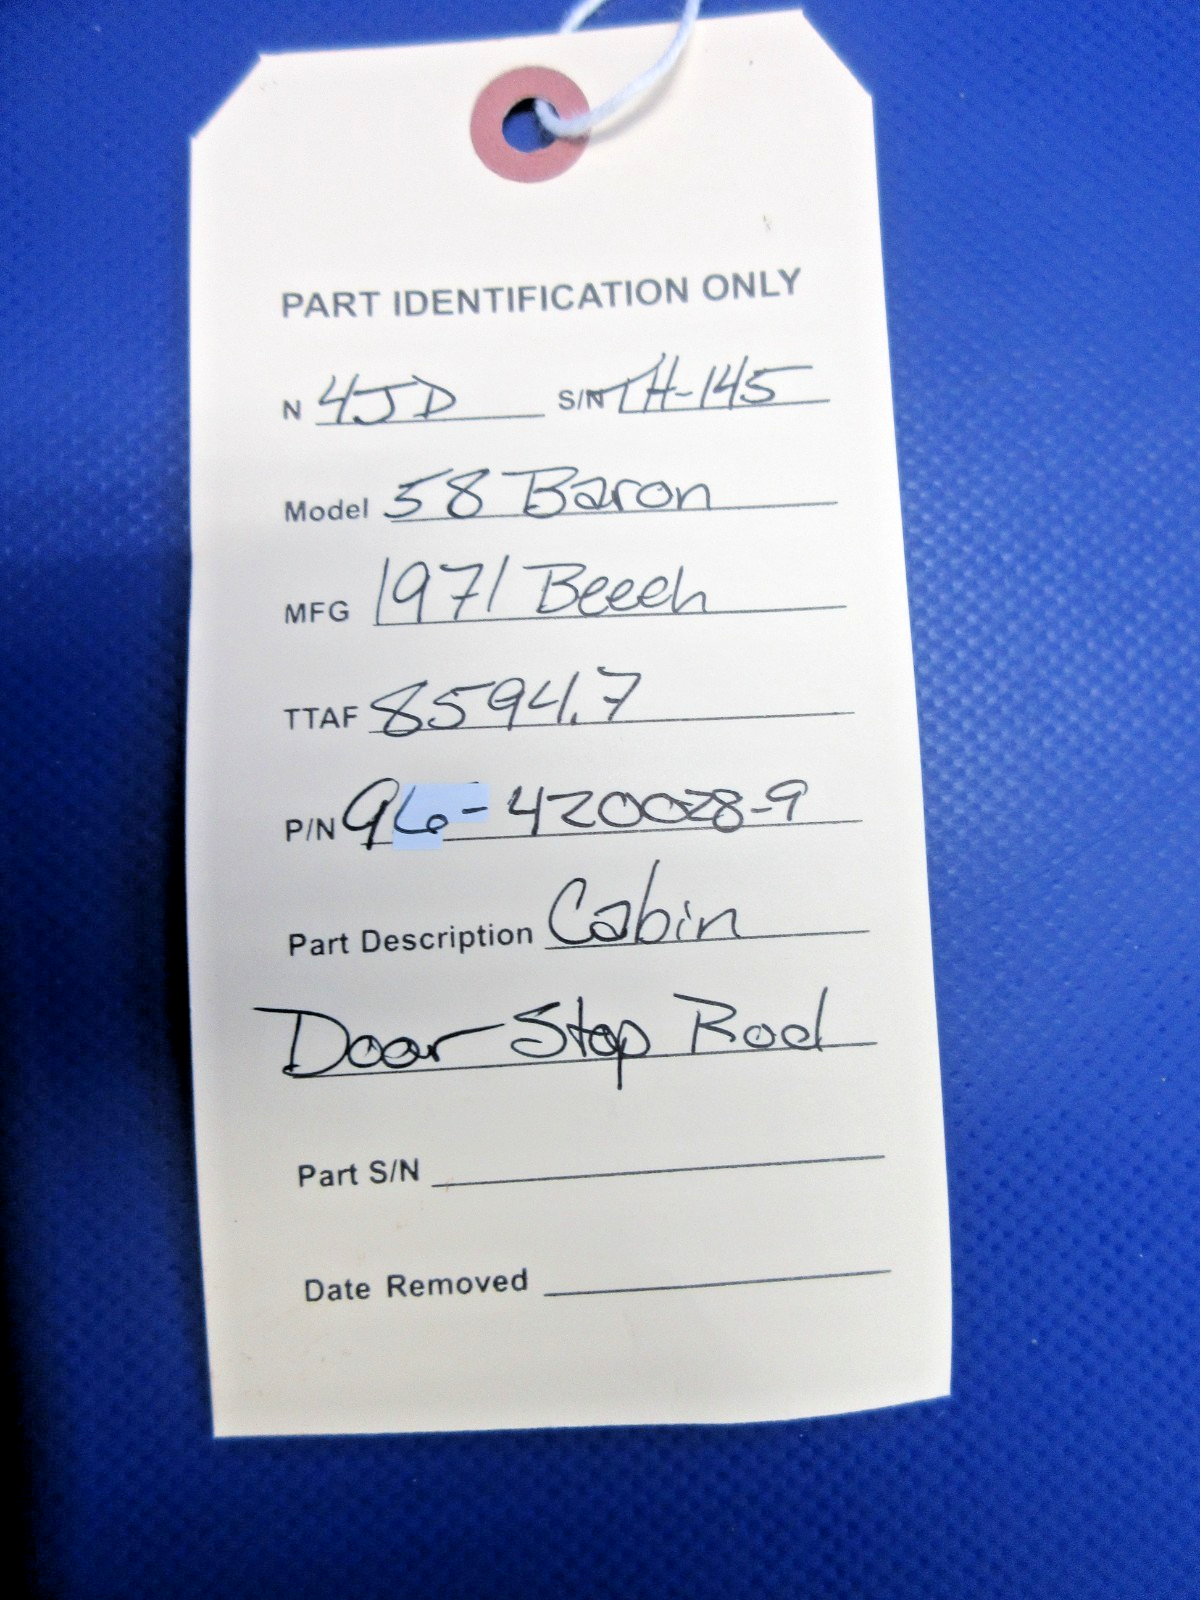 PART IDENTIFICATION ONLY
N 4JD S/N TH-145
Model 58 Baron
MFG 1971 Beech
TTAF 8594.7
P/N 96-420028-9
Part Description Cabin
Door Stop Rod
Part S/N
Date Removed